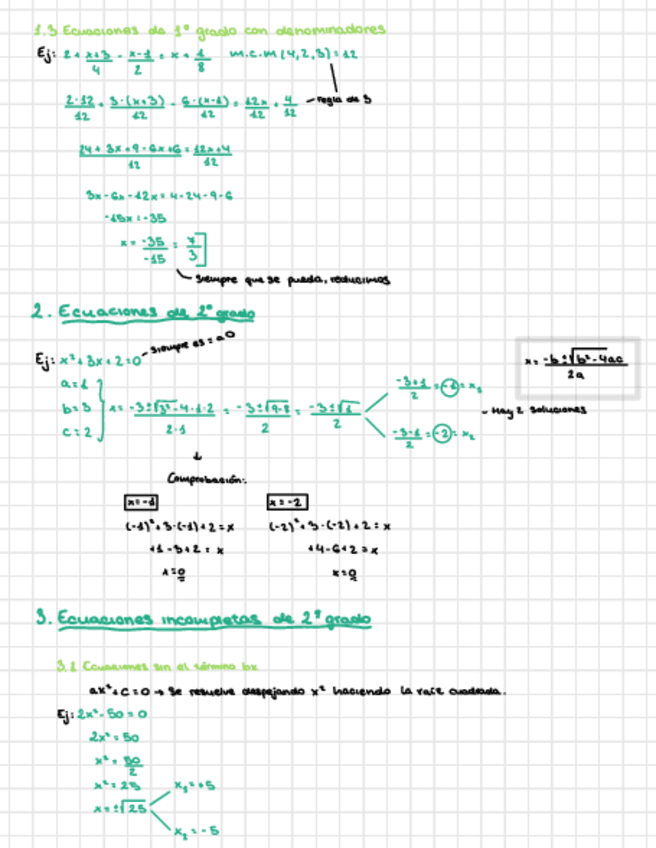 1.3 Ecuaciones de 1º grado con denominadores
Ej: 2 + x+3/4 - x-1/2 = x + 1/8 m.c.m (4,2,3) = 12
2·12/12 + 3·(x+3)/12 - 6·(x-1)/12 = 12x/12 + 4/12 - regla de 3
24 + 3x + 9 - 6x + 6/12 = 12x+4/12
3x - 6x - 12x = 4 - 24 - 9 - 6
-15x = -35
x = -35/-15 = 7/3
siempre que se pueda, reducimos
2. Ecuaciones de 2º grado
Ej: x² + 3x + 2 = 0 - siempre es = a 0
x = -b±√b²-4ac/2a
a = 1
b = 3
c = 2
x = -3±√3²-4·1·2/2·1 = -3±√9-8/2 = -3±√1/2
-3+1/2 = -1 = x₁
- Hay 2 soluciones
-3-1/2 = -2 = x₂
↓
Comprobación:
x = -1 x = -2
(-1)² + 3·(-1) + 2 = x (-2)² + 3·(-2) + 2 = x
+1 - 3 + 2 = x +4 - 6 + 2 = x
x = 0 x = 0
3. Ecuaciones incompletas de 2º grado
3.1 Ecuaciones sin el término bx
ax² + c = 0 → Se resuelve despejando x² haciendo la raíz cuadrada.
Ej: 2x² - 50 = 0
2x² = 50
x² = 50/2
x² = 25 x₁ = +5
x = ±√25
x₂ = -5